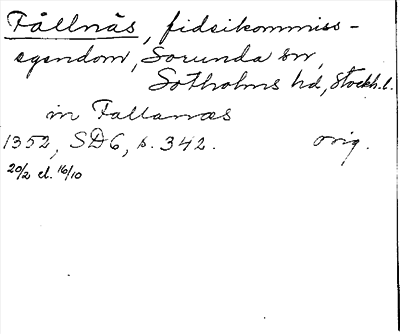 Fållnäs, fideikommiss-
egendom, Sorunda sn,
Sotholms hd, Stockh. l.
in Fallanæs
1352, SD 6, s. 342. orig.
20/2 el. 16/10